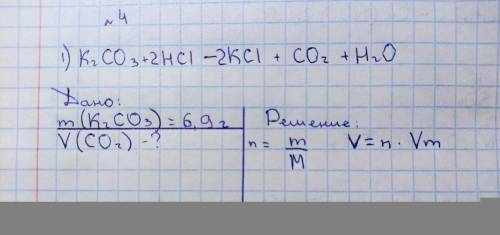 №4
1) K₂CO₃+2HCl —2KCl + CO₂ + H₂O
Дано:
m(K₂CO₃) = 6,9 г
V(CO₂) -?
Решение:
n = m/M V=n · Vm